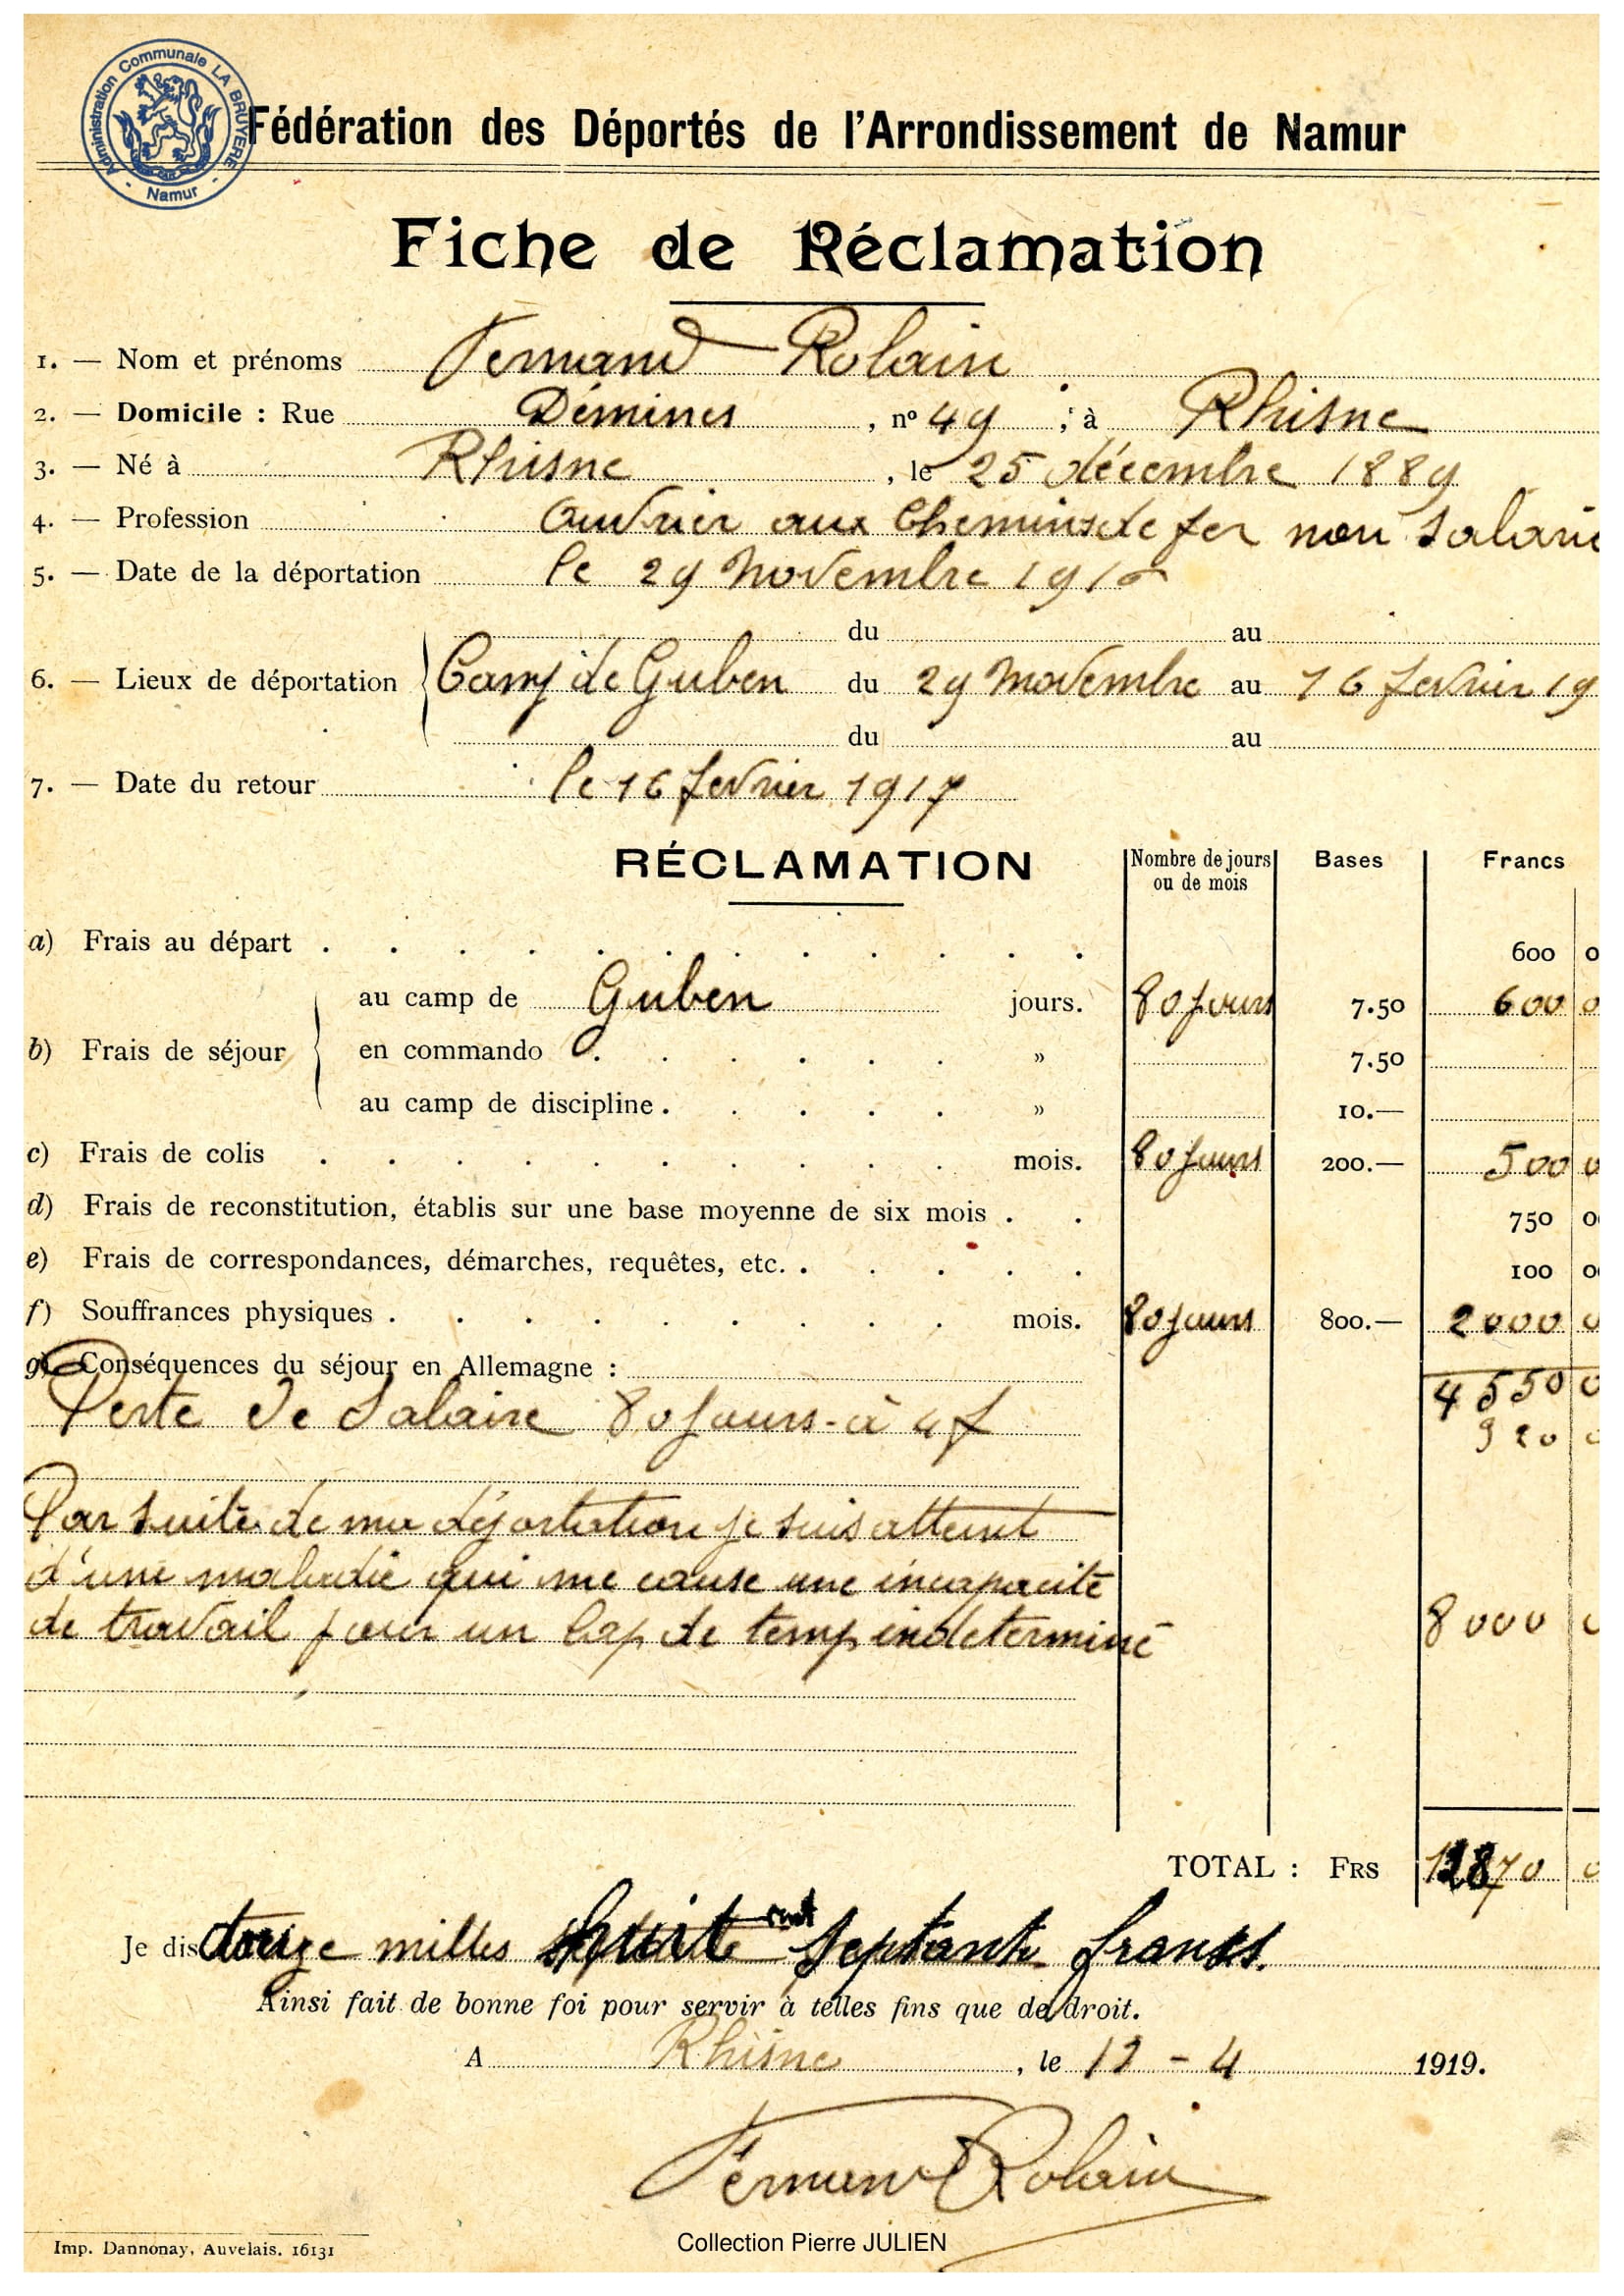 Administration Communale LA BRUYERE - Namur -
Fédération des Déportés de l'Arrondissement de Namur
Fiche de Réclamation
1. — Nom et prénoms Fernand Rolain
2. — Domicile : Rue Démines , nº 49 ; à Rhisne
3. — Né à Rhisne , le 25 décembre 1889
4. — Profession Ouvrier aux Chemins de fer non salarié
5. — Date de la déportation le 29 Novembre 1916
du au
6. — Lieux de déportation Camp de Guben du 29 Novembre au 16 fevrier 19
du au
7. — Date du retour le 16 fevrier 1917
RÉCLAMATION Nombre de jours ou de mois Bases Francs
a) Frais au départ 600 0
b) Frais de séjour
au camp de Guben jours. 80 jours 7.50 600 0
en commando » 7.50
au camp de discipline. » 10.—
c) Frais de colis mois. 80 jours 200.— 500 0
d) Frais de reconstitution, établis sur une base moyenne de six mois . . 750 0
e) Frais de correspondances, démarches, requêtes, etc. . 100 0
f) Souffrances physiques . mois. 80 jours 800.— 2000 0
g) Conséquences du séjour en Allemagne : 4550 0
Perte de Salaire 80 jours - à 4 f 320 0
Par suite de ma déportation je suis atteint
d'une maladie qui me cause une incapacité
de travail pour un lap de temp indeterminé 8000 0
TOTAL : FRS 12870 0
Je dis douze milles huit cent septante francs.
Ainsi fait de bonne foi pour servir à telles fins que de droit.
A Rhisne , le 12 - 4 1919.
Fernand Rolain
Imp. Dannonay, Auvelais. 16131
Collection Pierre JULIEN